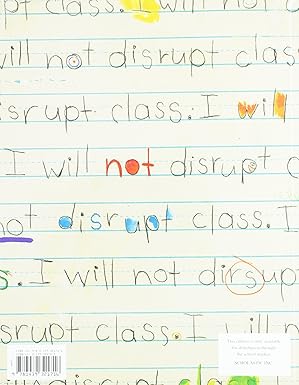 upt class. I will
will not disrupt clas
isrupt class. I will
I will not disrupt c
not disrupt class. I
s. I will not dirsup
disrupt class. I will
will not disrupt
This edition is only available
for distribution through
the school market.
SCHOLASTIC INC.